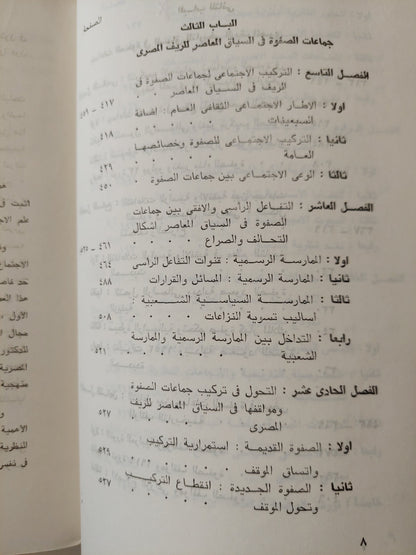 الصفحة
البساب الثالث
جماعات الصفوة فى السياق المعاصر للريف المصرى
الفصل التاسع : التركيب الاجتماعى لجماعات الصفوة فى
الريف فى السياق المعاصر . ٤١٧ —
اولا : الاطار الاجتماعى الثقافى العام : اضافة
السبعينيات . . . . . ٤١٨
ثانيا : التركيب الاجتماعى للصفوة وخصائصها
العامة . . . . . ٤٢٩
ثالثا : الوعى الاجتماعى بين جماعات الصفوة . ٤٥٠
الفصل العاشر : التفاعل الرأسى والافقى بين جماعات
الصفوة فى السياق المعاصر اشكال
التحالف والصراع . . . ٤٦١ —
اولا : الممارسة الرسمية : قنوات التفاعل الرأسى ٤٦٤
ثانيا : الممارسة الرسمية : المسائل والقرارات ٤٨٨
ثالثا : الممارسة السياسية الشعبية :
أساليب تسرية النزاعات . . ٥٠٨
رابعا : التداخل بين الممارسة الرسمية والممارسة
الشعبية . . . . ٥٢١
الفصل الحادى عشر : التحول فى تركيب جماعات الصفوة
ومواقفها فى السياق المعاصر للريف
المصرى . . . . ٥٢٧
اولا : الصفوة القديمة : استمرارية التركيب
واتساق الموقف . . . . ٥٢٩
ثانيا : الصفوة الجديدة : انقطاع التركيب
وتحول الموقف . . . . ٥٣٧
٨